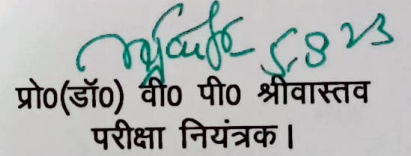 5.8 23
प्रो0(डॉ0) वी0 पी0 श्रीवास्तव
परीक्षा नियंत्रक।